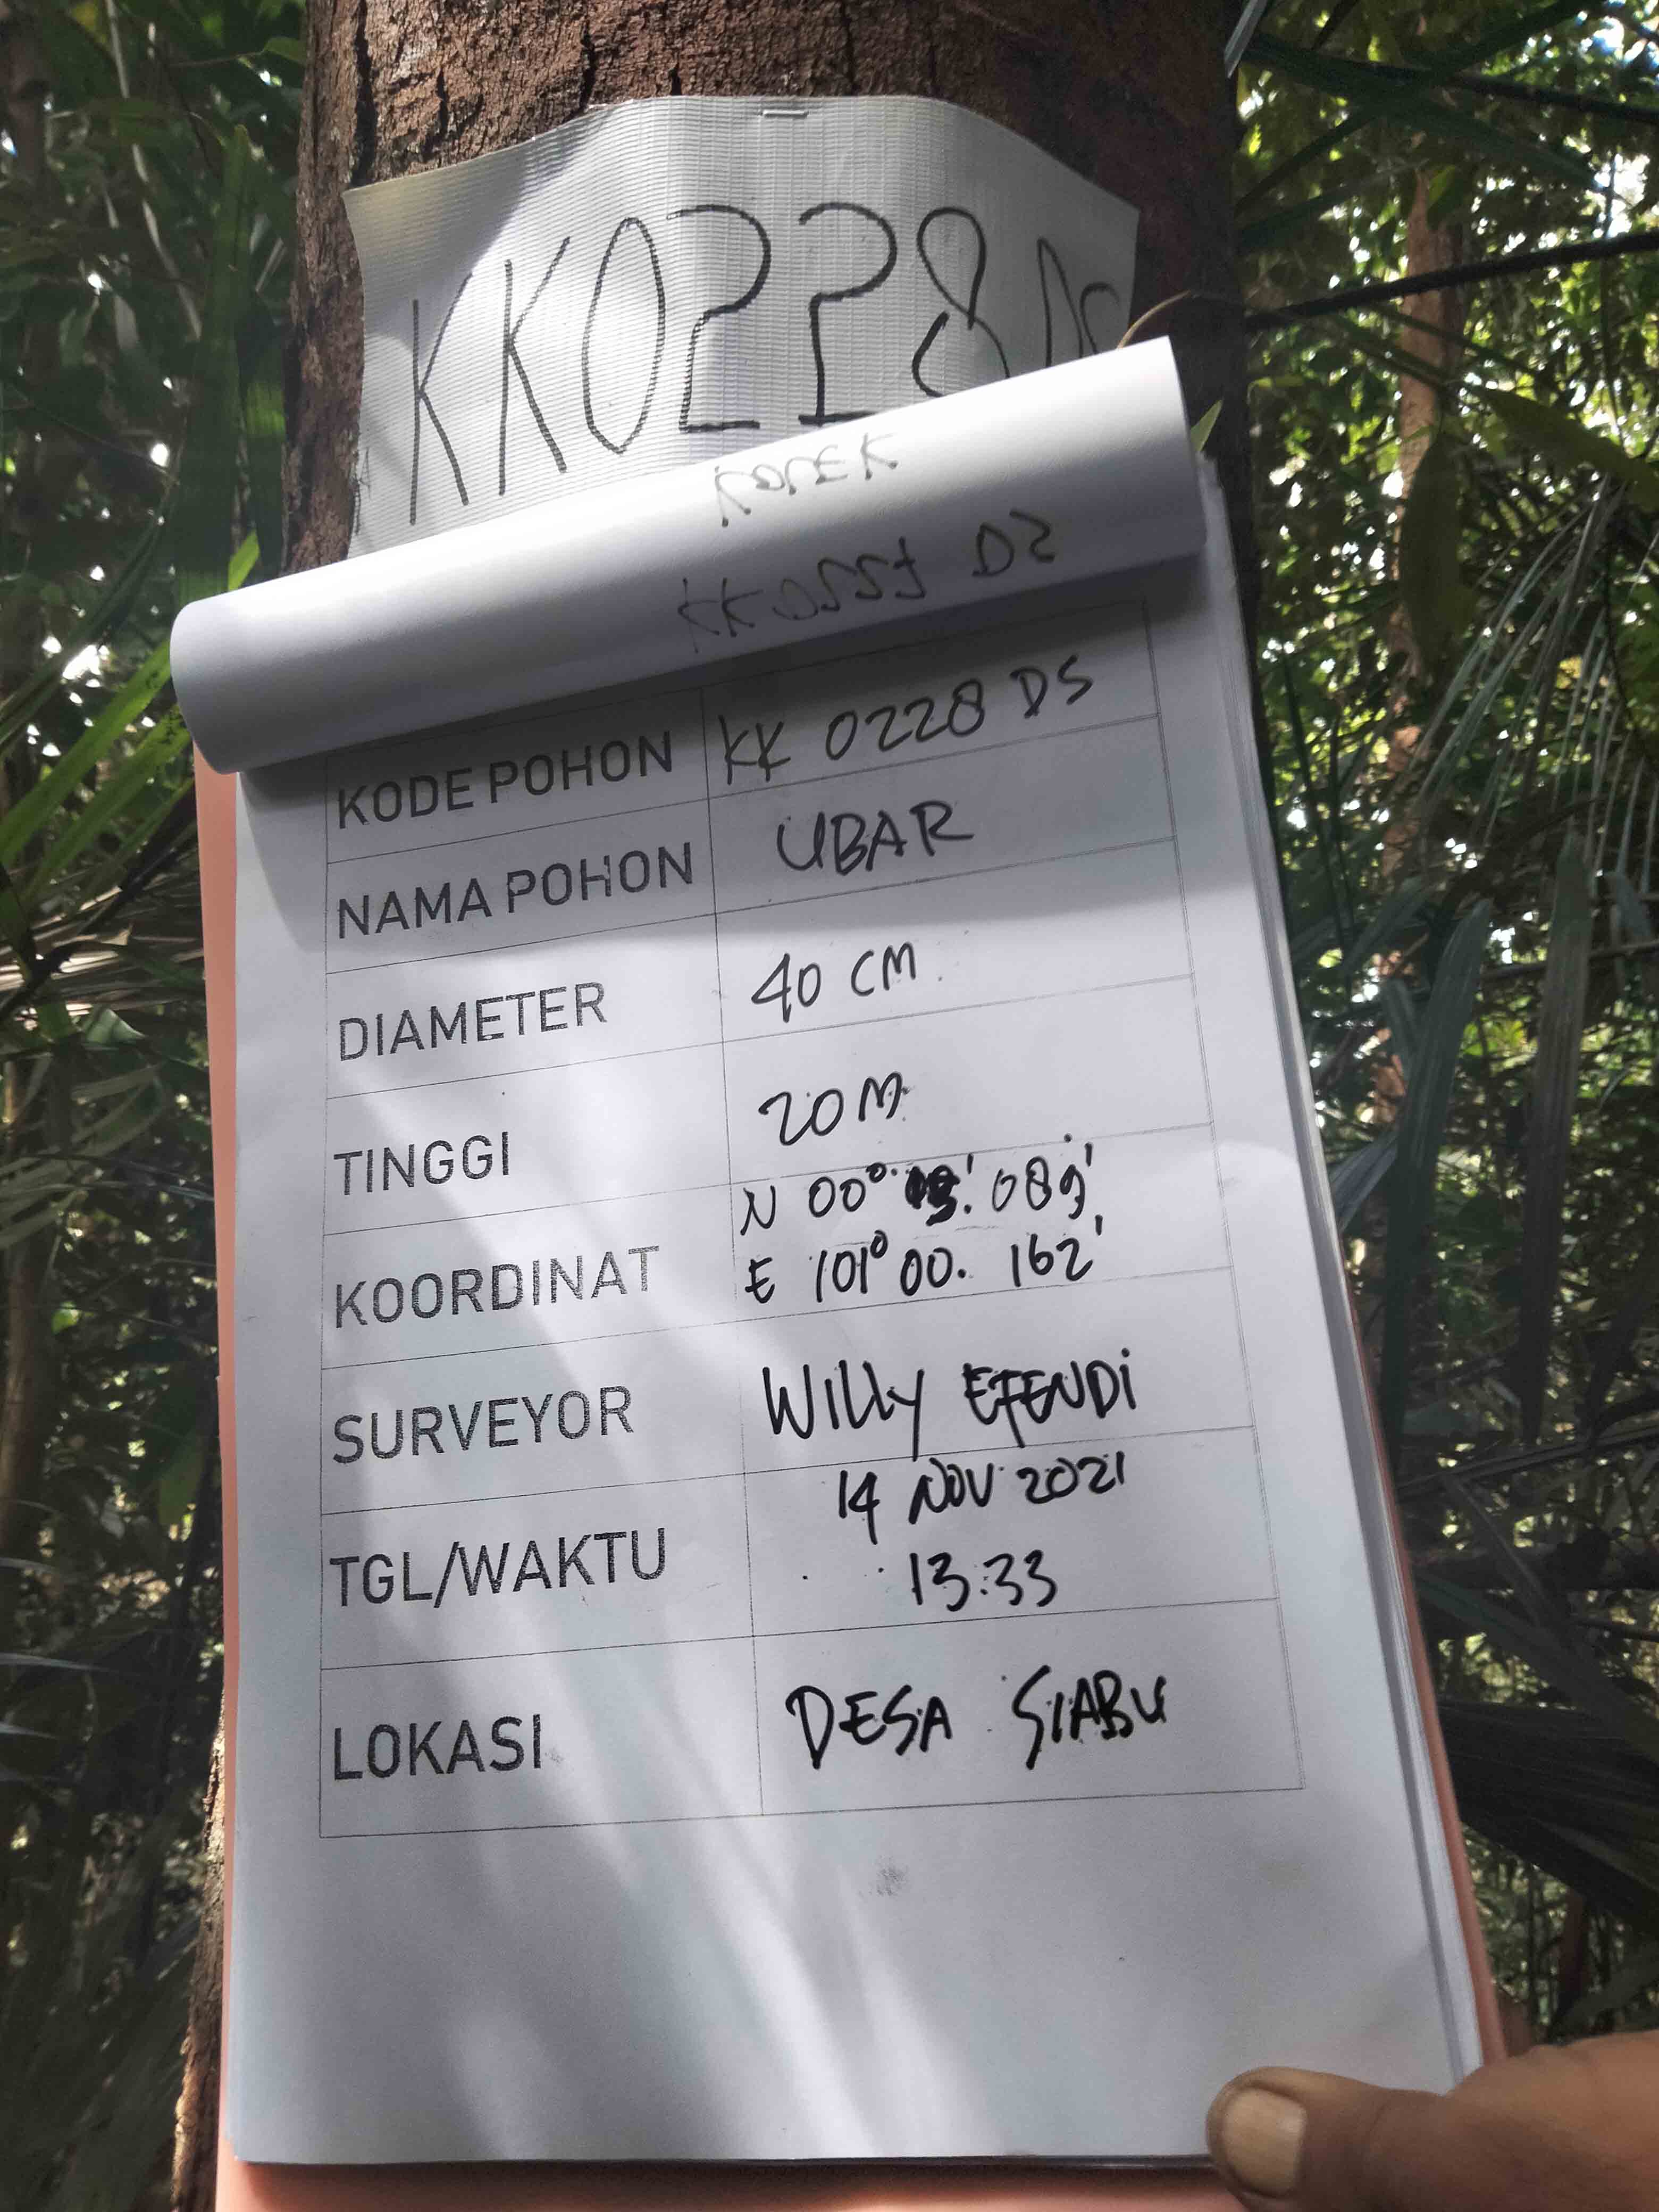 KK0228 DS
KODE POHON KK 0228 DS
NAMA POHON UBAR
DIAMETER 40 CM
TINGGI 20 M
KOORDINAT N 00° 089'
E 101° 00. 162'
SURVEYOR WILLY EFENDI
TGL/WAKTU 14 NOV 2021
13:33
LOKASI DESA SIABU